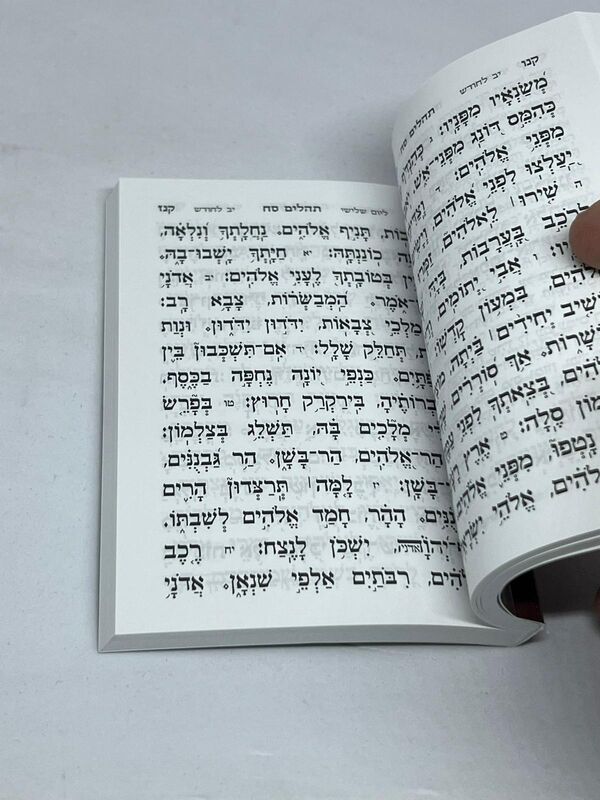 קנו יב לחודש תהלים סח
מְשַׂנְאָיו מִפָּנָיו:
כְּהִמֵּס דּוֹנַג מִפְּנֵי אֵשׁ,
מִפְּנֵי אֱלֹהִים:
יַעַלְצוּ לִפְנֵי אֱלֹהִים,
ה שִׁירוּ לֵאלֹהִים,
לָרֹכֵב בָּעֲרָבוֹת בְּיָהּ
ו אֲבִי יְתוֹמִים
בִּמְעוֹן קָדְשׁוֹ
יְחִידִים בַּיְתָה,
אַךְ סוֹרְרִים,
בְּצֵאתְךָ לִפְנֵי
סֶלָה: ט אֶרֶץ
נָטְפוּ, מִפְּנֵי אֱלֹהִים
אֱלֹהֵי
ליום שלישי תהלים סח יב לחודש קנז
תָּנִיף אֱלֹהִים, נַחֲלָתְךָ וְנִלְאָה,
כוֹנַנְתָּהּ: יא חַיָּתְךָ יָשְׁבוּ־בָהּ,
בְּטוֹבָתְךָ לֶעָנִי אֱלֹהִים: יב אֲדֹנָי
אֹמֶר, הַמְבַשְּׂרוֹת, צָבָא רָב:
מַלְכֵי צְבָאוֹת, יִדֹּדוּן יִדֹּדוּן, וּנְוַת
תְּחַלֵּק שָׁלָל: יד אִם־תִּשְׁכְּבוּן בֵּין
כַּנְפֵי יוֹנָה נֶחְפָּה בַכֶּסֶף,
בִּירַקְרַק חָרוּץ: טו בְּפָרֵשׂ
מְלָכִים בָּהּ, תַּשְׁלֵג בְּצַלְמוֹן:
הַר־אֱלֹהִים, הַר־בָּשָׁן, הַר גַּבְנֻנִּים,
בָּשָׁן: יז לָמָּה תְּרַצְּדוּן הָרִים
הָהָר, חָמַד אֱלֹהִים לְשִׁבְתּוֹ,
יִשְׁכֹּן לָנֶצַח: יח רֶכֶב
רִבֹּתַיִם אַלְפֵי שִׁנְאָן, אֲדֹנָי